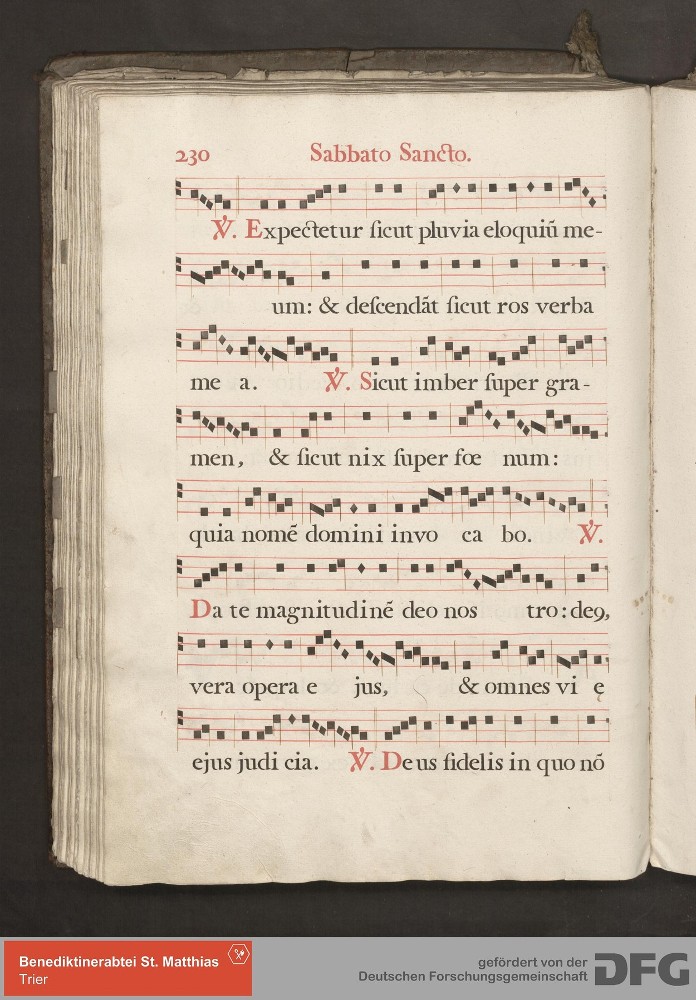 230 Sabbato Sancto.
℣. Expectetur ſicut pluvia eloquiū me-
um: & deſcendāt ſicut ros verba
me a. ℣. Sicut imber ſuper gra-
men, & ſicut nix ſuper fœ num:
quia nomē domini invo ca bo. ℣.
Da te magnitudinē deo nos tro: deꝯ,
vera opera e jus, & omnes vi ę
ejus judi cia. ℣. Deus fidelis in quo nō
Benediktinerabtei St. Matthias
Trier
gefördert von der
Deutschen Forschungsgemeinschaft
DFG